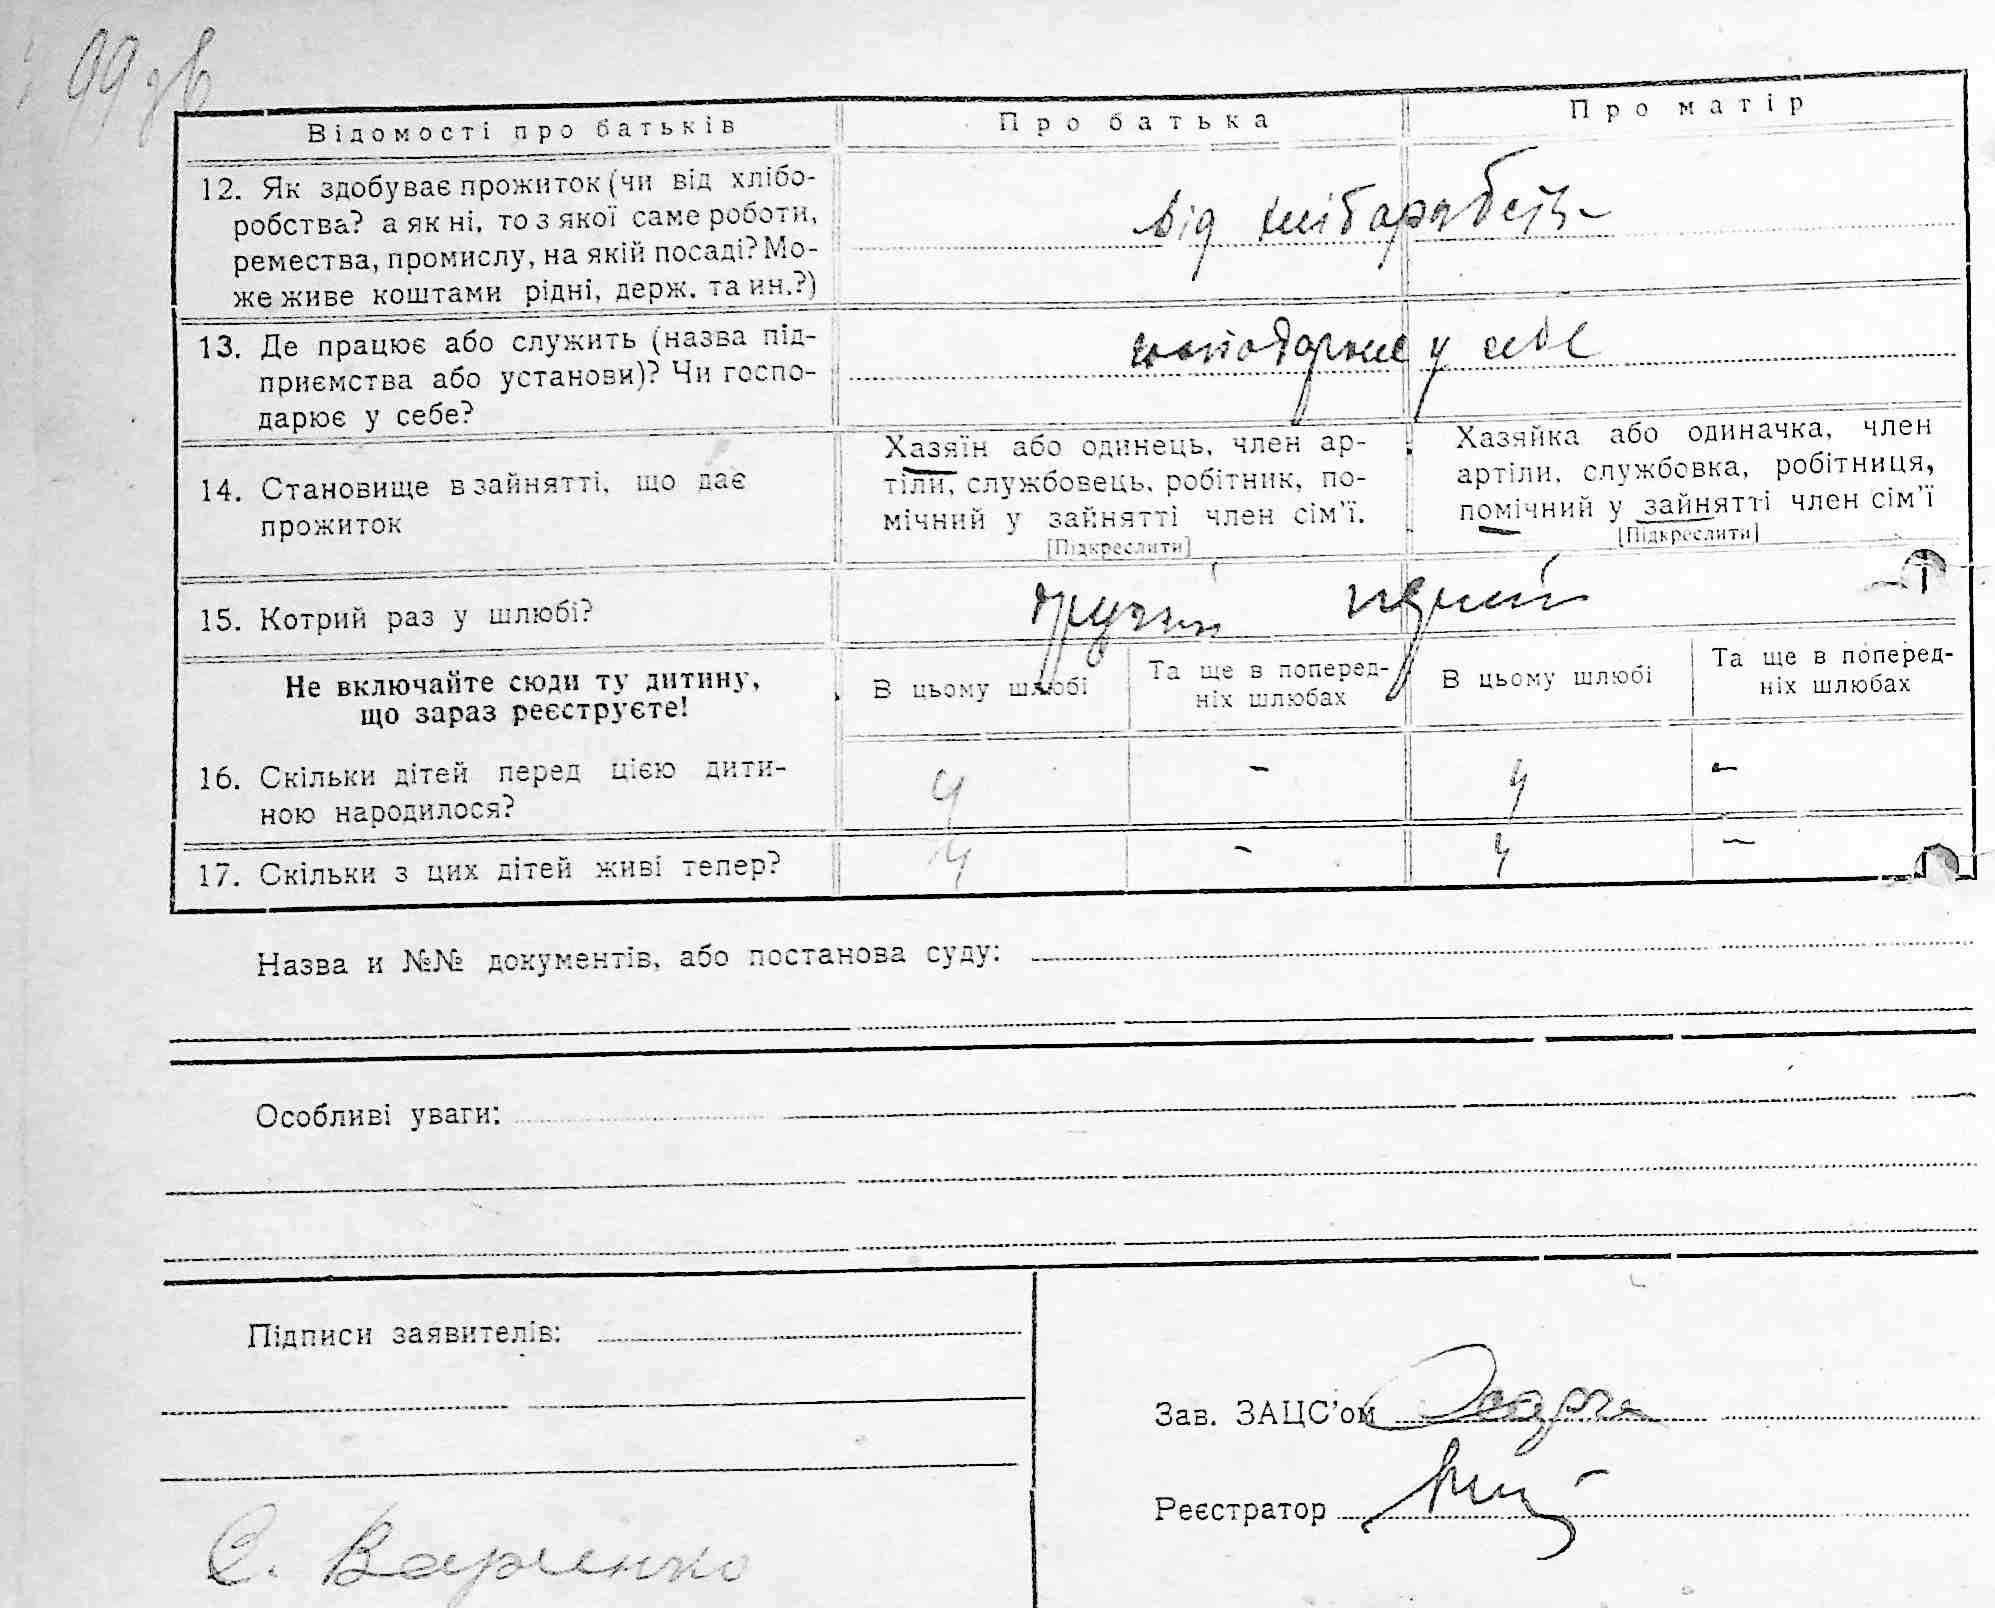 99 зв
Відомості про батьків
Про батька
Про матір
12. Як здобуває прожиток (чи від хлібо-
робства? а як ні, то з якої саме роботи,
ремества, промислу, на якій посаді? Мо-
же живе коштами рідні, держ. та ин.?)
від хліборобств
13. Де працює або служить (назва під-
приємства або установи)? Чи госпо-
дарює у себе?
господарює у себе
14. Становище в зайнятті, що дає
прожиток
Хазяїн або одинець, член ар-
тіли, службовець, робітник, по-
мічний у зайнятті член сім'ї.
[Підкреслити]
Хазяйка або одиначка, член
артіли, службовка, робітниця,
помічний у зайнятті член сім'ї
[Підкреслити]
15. Котрий раз у шлюбі?
другий
перший
Не включайте сюди ту дитину,
що зараз реєструєте!
В цьому шлюбі
Та ще в поперед-
ніх шлюбах
В цьому шлюбі
Та ще в поперед-
ніх шлюбах
16. Скільки дітей перед цією дити-
ною народилося?
4 - 4 -
17. Скільки з цих дітей живі тепер?
4 - 4 -
Назва и №№ документів, або постанова суду:
Особливі уваги:
Підписи заявителів:
Зав. ЗАЦС'ом
Реєстратор